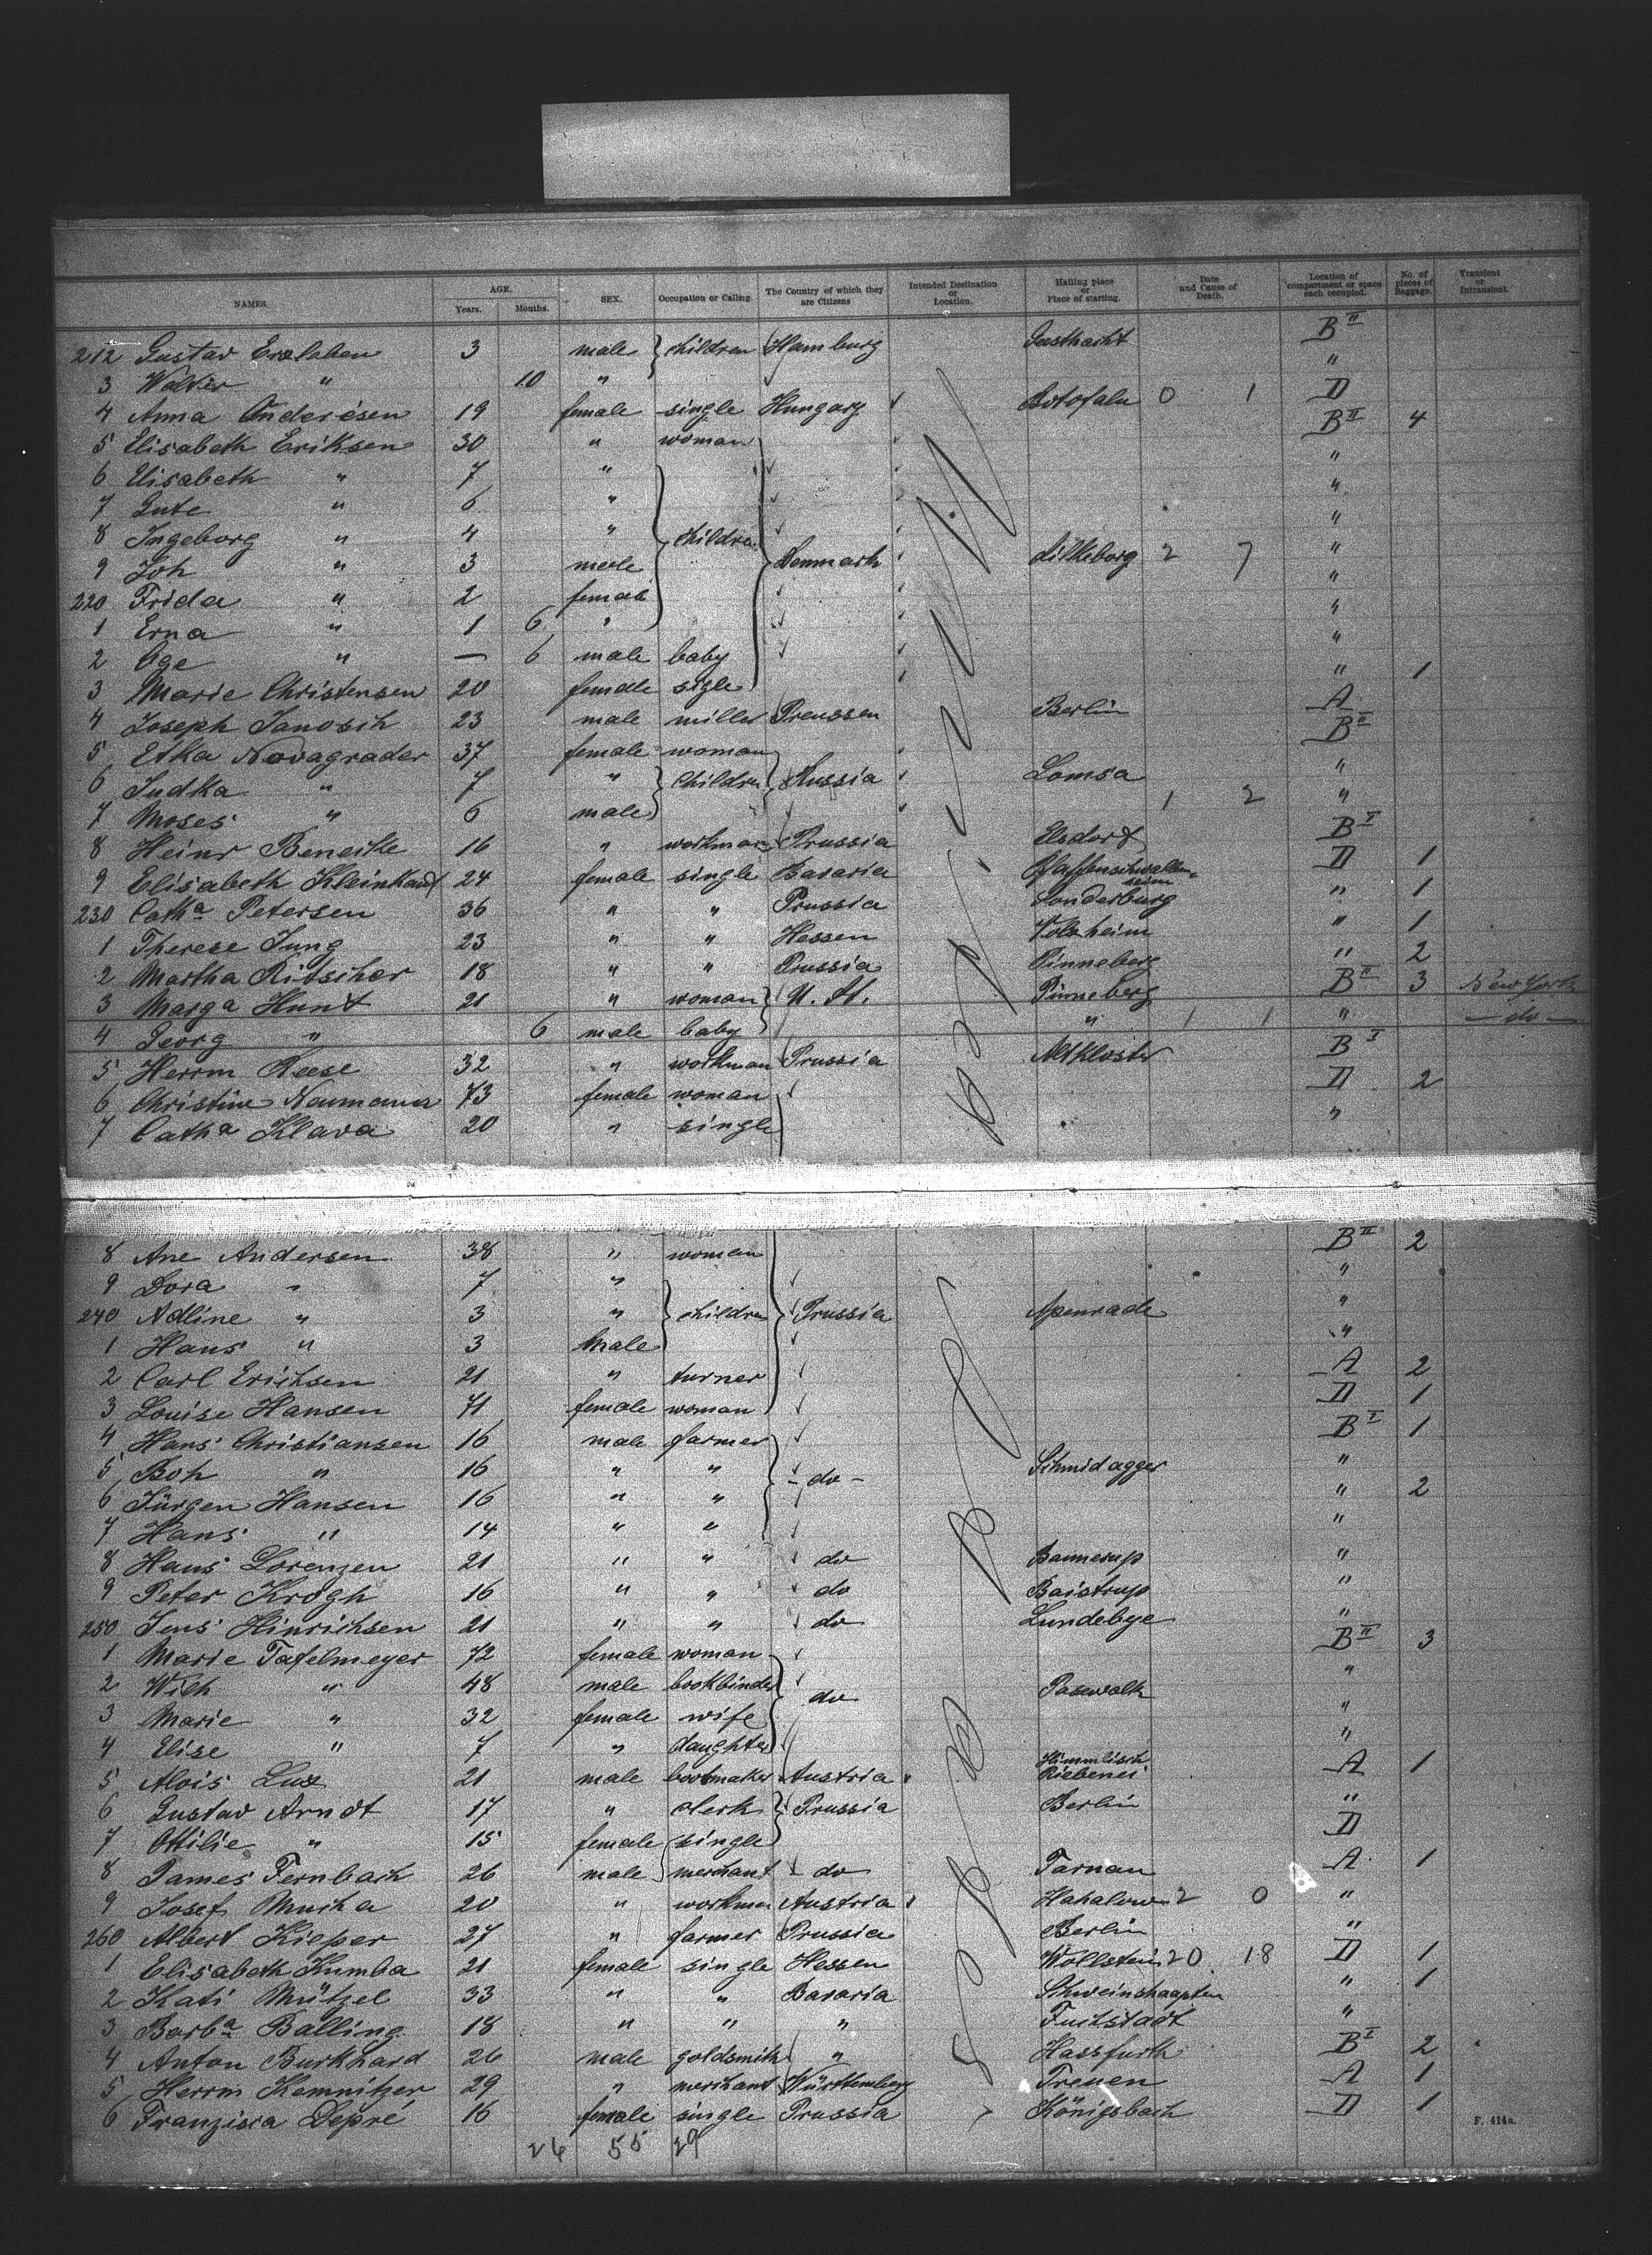 NAMES. AGE. Years. Months. SEX. Occupation or Calling. The Country of which they are Citizens Intended Destination or Location. Hailing place or Place of starting. Date and Cause of Death. Location of compartment or space each occupied. No. of pieces of Baggage. Transient or Intransient.
212 Gustav Erxleben 3 male children Hamburg Geesthacht B II
3 Walter " 10 " "
4 Anna Anderésen 19 female single Hungary 0 1 D
5 Elisabeth Eriksen 30 " woman B II 4
6 Elisabeth " 7 " "
7 Gute " 6 " "
8 Ingeborg " 4 " children "
9 Joh " 3 male Denmark Silkeborg 2 7 "
220 Frida " 2 female "
1 Erna " 1 6 " "
2 Age " — 6 male baby "
3 Marie Christensen 20 female sigle " 1
4 Joseph Janosch 23 male miller Preussen Berlin A
5 Etka Novagrader 37 female woman B II
6 Judka " 7 " children Russia Lomsa "
7 Moses " 6 male 1 2 "
8 Heinr Beneike 16 " workman Prussia Elsdorf B I
9 Elisabeth Kleinkauf 24 female single Bavaria D 1
230 Catha Petersen 36 " " Prussia Sonderburg " 1
1 Therese Jung 23 " " Hessen Volxheim " 1
2 Martha Ritscher 18 " " Prussia Pinneberg " 2
3 Marga Hunt 21 " woman U. St. Pinneberg B II 3 New York
4 Georg " 6 male baby " 1 1 " — do —
5 Herrm Reese 32 " workman Prussia Altkloster B I
6 Christine Neumann 73 female woman D 2
7 Catha Klava 20 " single "
8 Ane Andersen 38 " woman B II 2
9 Dora " 7 " "
240 Adline " 3 " children Prussia Apenrade "
1 Hans " 3 Male "
2 Carl Erichsen 21 " turner A 2
3 Louise Hansen 71 female woman D 1
4 Hans Christiansen 16 male farmer B I 1
5 Boh " 16 " " - do - Schmidagger "
6 Jürgen Hansen 16 " " " 2
7 Hans " 14 " " "
8 Hans Lorenzen 21 " " do Bannerup "
9 Peter Krogh 16 " " do Baistrup "
250 Jens Hinrichsen 21 " " do Lundebye "
1 Marie Tafelmeyer 72 female woman B II 3
2 Wilh " 48 male bookbinder do Pasewalk "
3 Marie " 32 female wife "
4 Elise " 7 " daughter "
5 Alois Lux 21 male bootmaker Austria Himmlisch Riebenei A 1
6 Gustav Arndt 17 " clerk Prussia Berlin "
7 Ottilie " 15 female single D
8 James Fernbach 26 male merchant do Tarnau A 1
9 Josef Mucha 20 " workman Austria Hakalow 2 0 "
260 Albert Kieper 27 " farmer Prussia Berlin "
1 Elisabeth Kumba 21 female single Hessen Wöllstein 20 18 D 1
2 Kati Mützel 33 " " Bavaria Schweinshaupten " 1
3 Barba Balling 18 " " " Fuchstadt "
4 Anton Burkhard 26 male goldsmith " Hassfurth B I 2
5 Herrm Kemnitzer 29 " merchant Württemberg Treuen A 1
6 Franzisca Depré 16 female single Prussia Königsbach D 1
F. 414a.
26 55 29